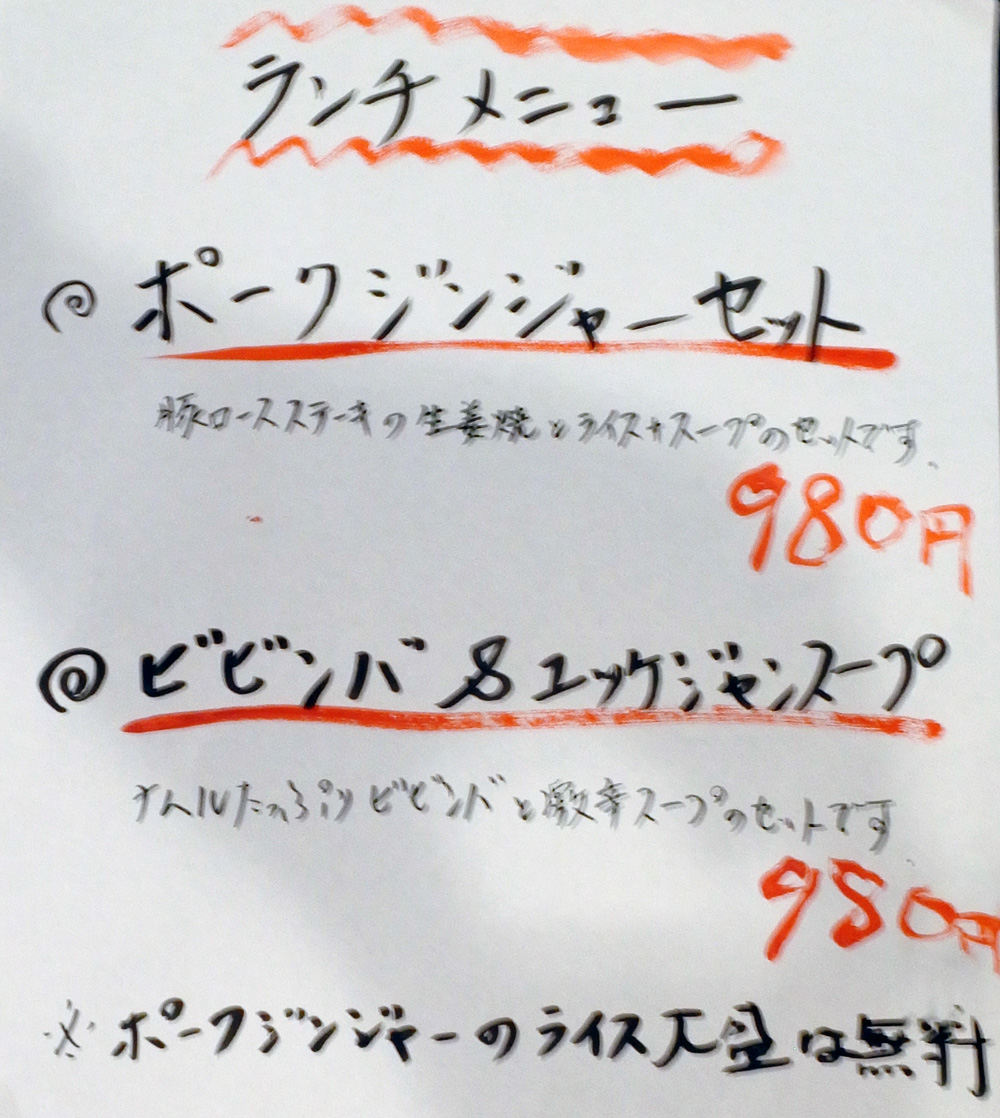 ランチメニュー
◎ ポークジンジャーセット
豚ロースステーキの生姜焼とライス+スープのセットです。
980円
◎ ビビンバ&ユッケジャンスープ
ナムルたっぷりビビンバと激辛スープのセットです。
980円
※ポークジンジャーのライス大盛は無料